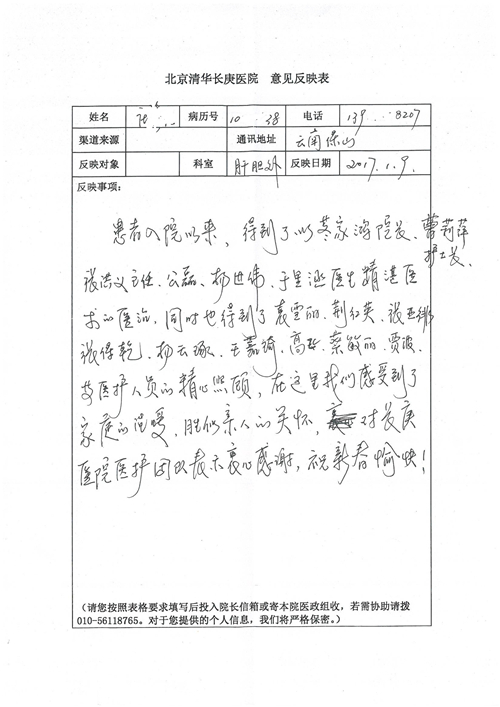 北京清华长庚医院 意见反映表
姓名 病历号 10 38 电话 139 8207
渠道来源 通讯地址 云南保山
反映对象 科室 肝胆外 反映日期 2017.1.9.
反映事项：
患者入院以来，得到了以董家鸿院长、曹莉萍
护士长、
张洪义主任、公磊、杨世伟、于里涵医生精湛医
术的医治，同时也得到了袁雪丽、荆红英、张
张得乾、杨云琢、王嘉琦、高、蔡敏丽、贾波、
等医护人员的精心照顾，在这里我们感受到了
家庭的温暖、胜似亲人的关怀，对长庚
医院医护团队表示衷心感谢，祝新春愉快！
（请您按照表格要求填写后投入院长信箱或寄本院医政组收，若需协助请拨
010-56118765。对于您提供的个人信息，我们将严格保密。）